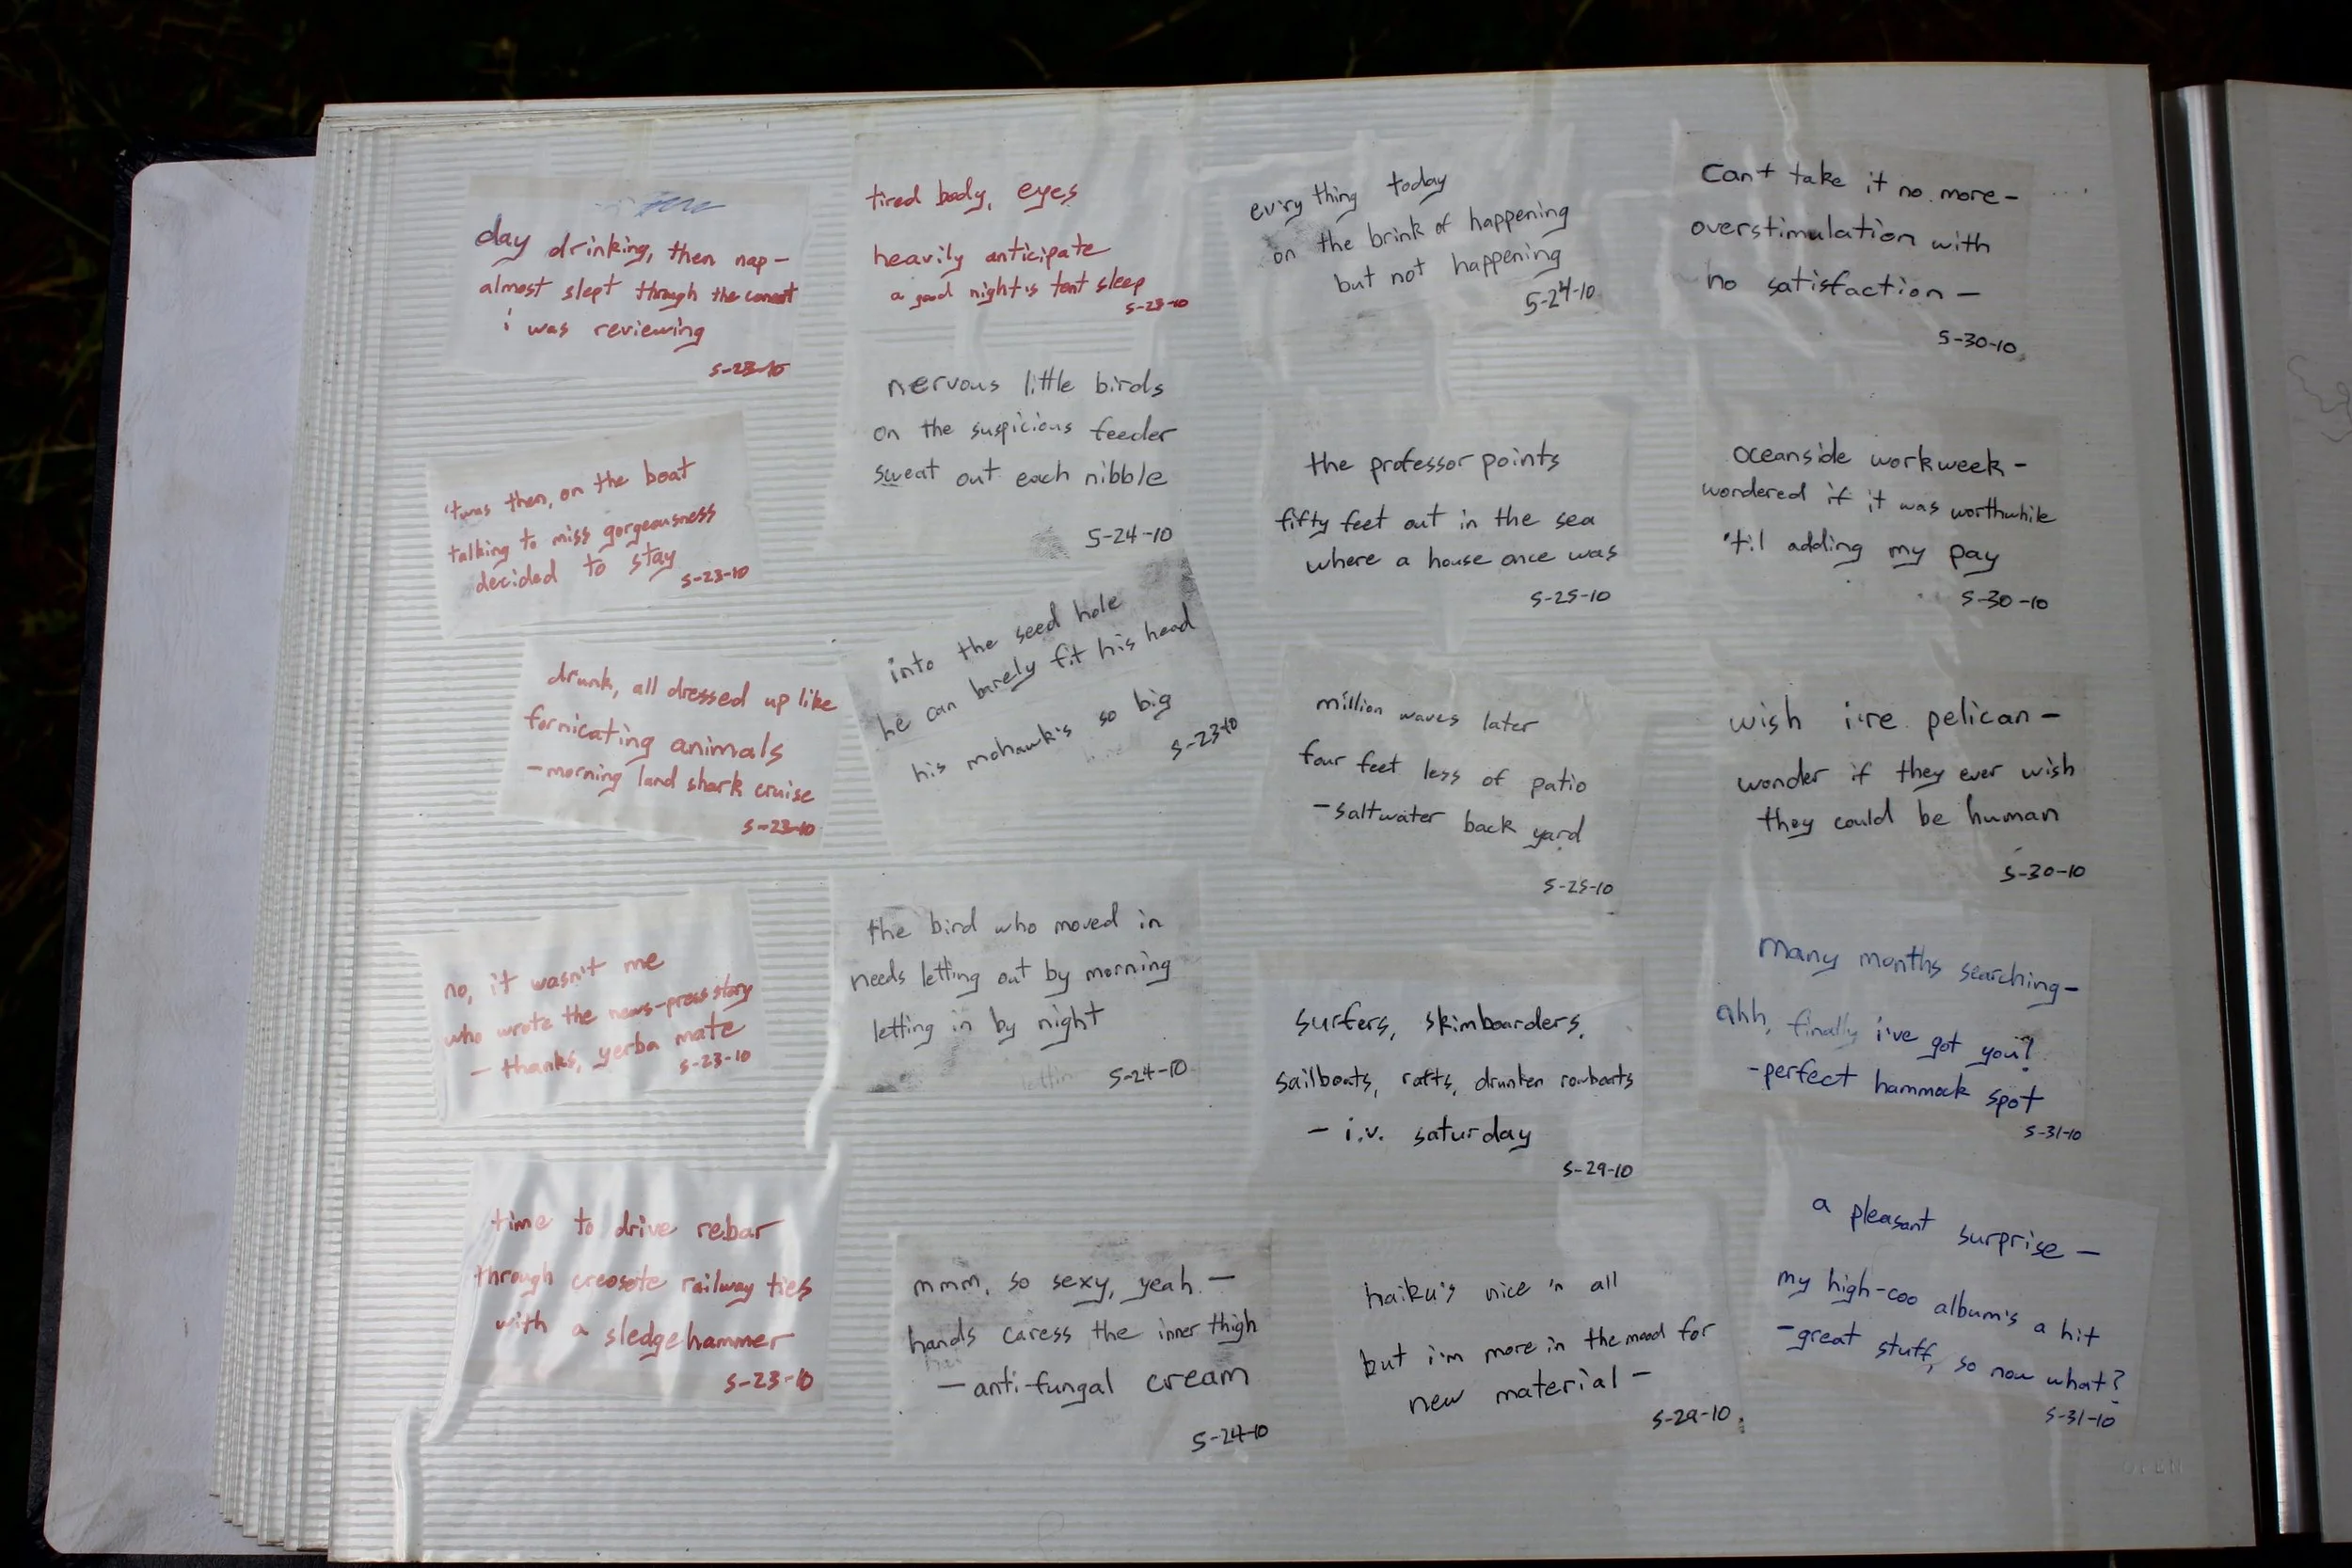 day drinking, then nap —
almost slept through the concert
i was reviewing
5-23-10
'twas then, on the boat
talking to miss gorgeousness
decided to stay
5-23-10
drunk, all dressed up like
fornicating animals
— morning land shark cruise
5-23-10
no, it wasn't me
who wrote the news-press story
— thanks, yerba mate
5-23-10
time to drive rebar
through creosote railway ties
with a sledgehammer
5-23-10
tired body, eyes
heavily anticipate
a good night's tent sleep
5-23-10
nervous little birds
on the suspicious feeder
sweat out each nibble
5-24-10
into the seed hole
he can barely fit his head
his mohawk's so big
5-23-10
the bird who moved in
needs letting out by morning
letting in by night
5-24-10
mmm, so sexy, yeah —
hands caress the inner thigh
— anti-fungal cream
5-24-10
every thing today
on the brink of happening
but not happening
5-24-10
the professor points
fifty feet out in the sea
where a house once was
5-25-10
million waves later
four feet less of patio
— saltwater back yard
5-25-10
surfers, skimboarders,
sailboats, rafts, drunken rowboats
— i.v. saturday
5-29-10
haiku's nice 'n all
but i'm more in the mood for
new material —
5-29-10
can't take it no more —
overstimulation with
no satisfaction —
5-30-10
oceanside workweek —
wondered if it was worthwhile
'til adding my pay
5-30-10
wish i're pelican —
wonder if they ever wish
they could be human
5-30-10
many months searching —
ahh, finally i've got you!
- perfect hammock spot
5-31-10
a pleasant surprise —
my high-coo album's a hit
- great stuff, so now what?
5-31-10